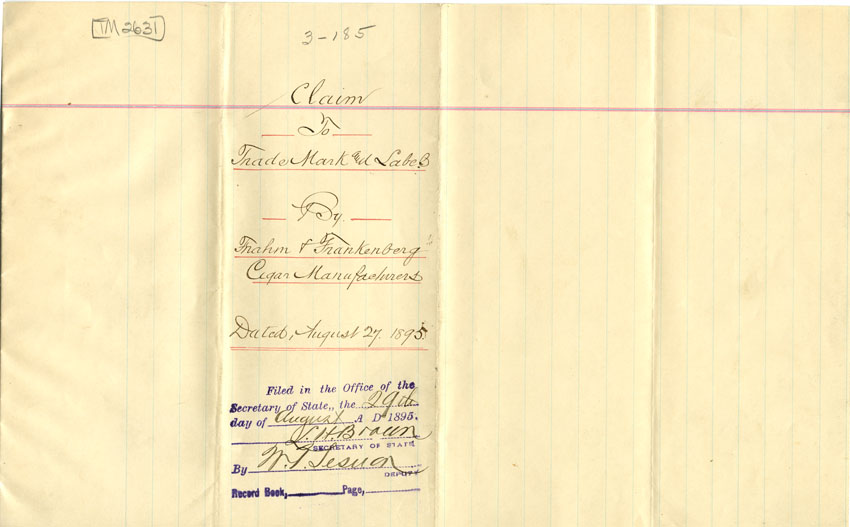 TM 2631
3-185
Claim
To
Trade Mark and Label
By.
Frahm & Frankenberg
Cigar Manufacturers
Dated, August 27. 1895.
Filed in the Office of the
Secretary of State,, the 29th
day of August A D 1895.
L. H. Brown
SECRETARY OF STATE
By W. T. Sesnon
DEPUTY
Record Book, Page,